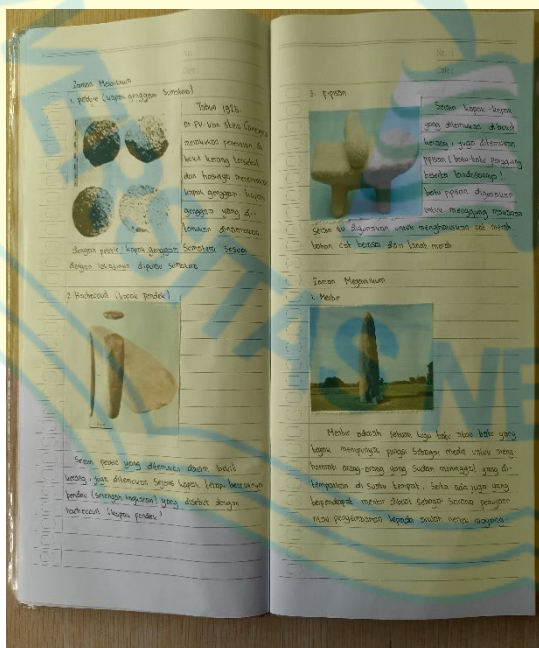 No :
Date :
Zaman Mesolitikum
1. pebble (kapak genggam Sumatra)
Tahun 1925.
Dr PV. Van Stein Callenfels
melakukan penelitian di
bukit kerang tersebut
dan hasilnya menemukan
kapak genggam. Kapak
genggam yang di-
temukan dinamakan
dengan pebble / kapak genggam Sumatra Sesuai
dengan lokasinya dipulau Sumatra
2. Hachecourt (kapak pendek)
Selain pebble yang ditemukan dalam bukit
kerang, juga ditemukan Sejenis kapak tetapi bentuknya
pendek (setengah lingkaran) yang disebut dengan
hachecourt (kapak pendek)
No :
Date :
3. Pipisan
Selain kapak-kapak
yang ditemukan dibukit
kerang, juga ditemukan
pipisan (batu-batu penggiling
beserta landasannya)
batu pipisan digunakan
untuk menggiling makanan
Selain itu digunakan untuk menghaluskan cat merah
bahan cat berasal dari tanah merah
Zaman Megalitikum
1. Menhir
Menhir adalah sebuah tugu batu atau batu yang
tegak mempunyai fungsi Sebagai media untuk meng-
hormati orang-orang yang Sudah meninggal yang di-
tempatkan di Suatu tempat. Serta ada juga yang
berpendapat menhir dibuat Sebagai Sarana pemujaan
atau penyembahan kepada arwah nenek moyang